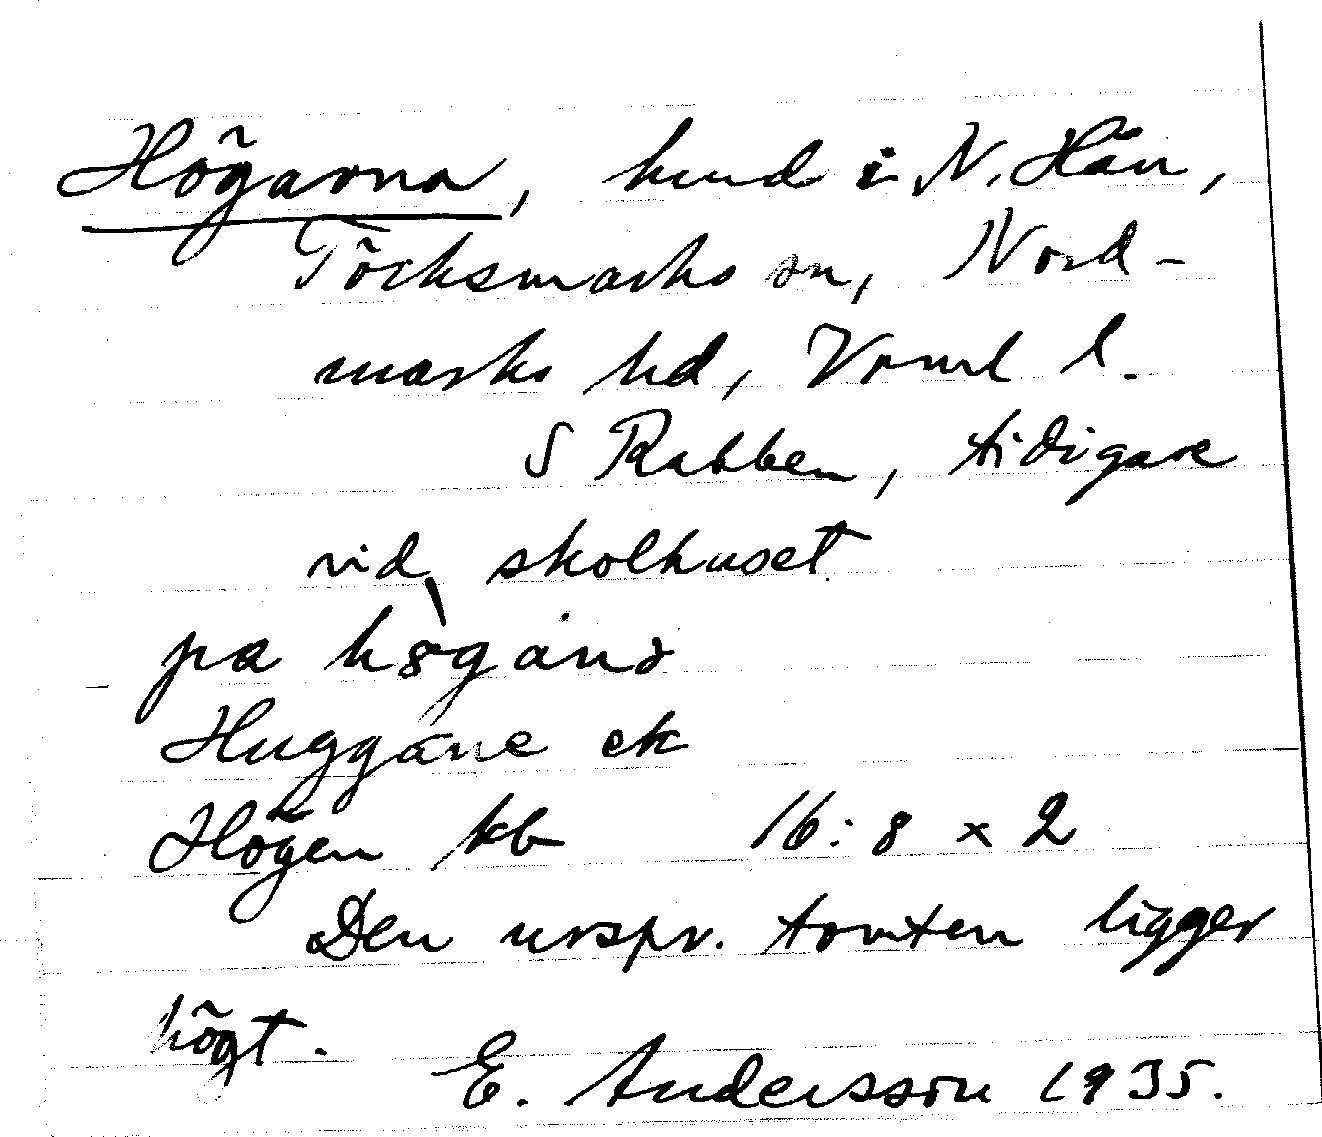 Högarna, hmd i N. Hän,
Töcksmarks sn, Nord-
marks hd, Verml l.
S Rabben, tidigare
vid skolhuset
pa høgånɔ
Huggane ek
Högen kb 16:8 x 2
Den urspr. tomten ligger
högt.
E. Andersson 1935.